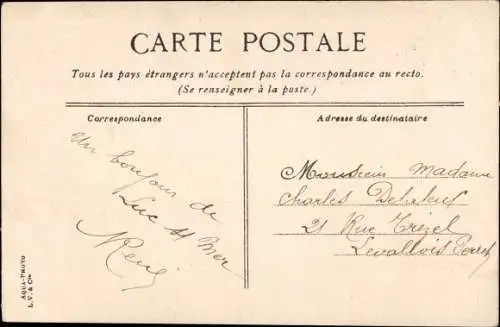 CARTE POSTALE
Tous les pays étrangers n'acceptent pas la correspondance au recto.
(Se renseigner à la poste.)
Correspondance
Adresse du destinataire
Un bonjour de
Luc s/ Mer
René
Monsieur Madame
Charles
21 Rue Trézel
Levallois Perret
AQUA-PHOTO
L.V. & Cie